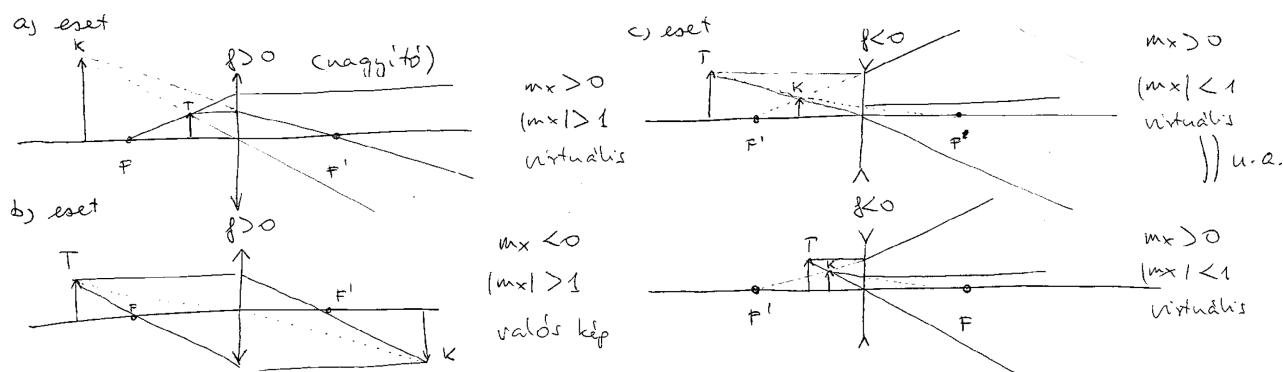 a) eset
K
f>0
(nagyító)
T
F
F'
mx > 0
|mx| > 1
virtuális
b) eset
f>0
T
F
F'
K
mx < 0
|mx| > 1
valós kép
c) eset
f<0
T
K
F'
mx > 0
|mx| < 1
virtuális
u.a.
f<0
T
K
F'
F
mx > 0
|mx| < 1
virtuális